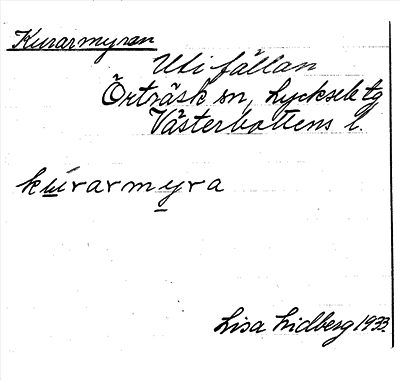 Kurarmyran
Uti fällan
Örträsk sn, Lycksele tg
Västerbottens l.
kúrarmyra
Lisa Lidberg 1933.